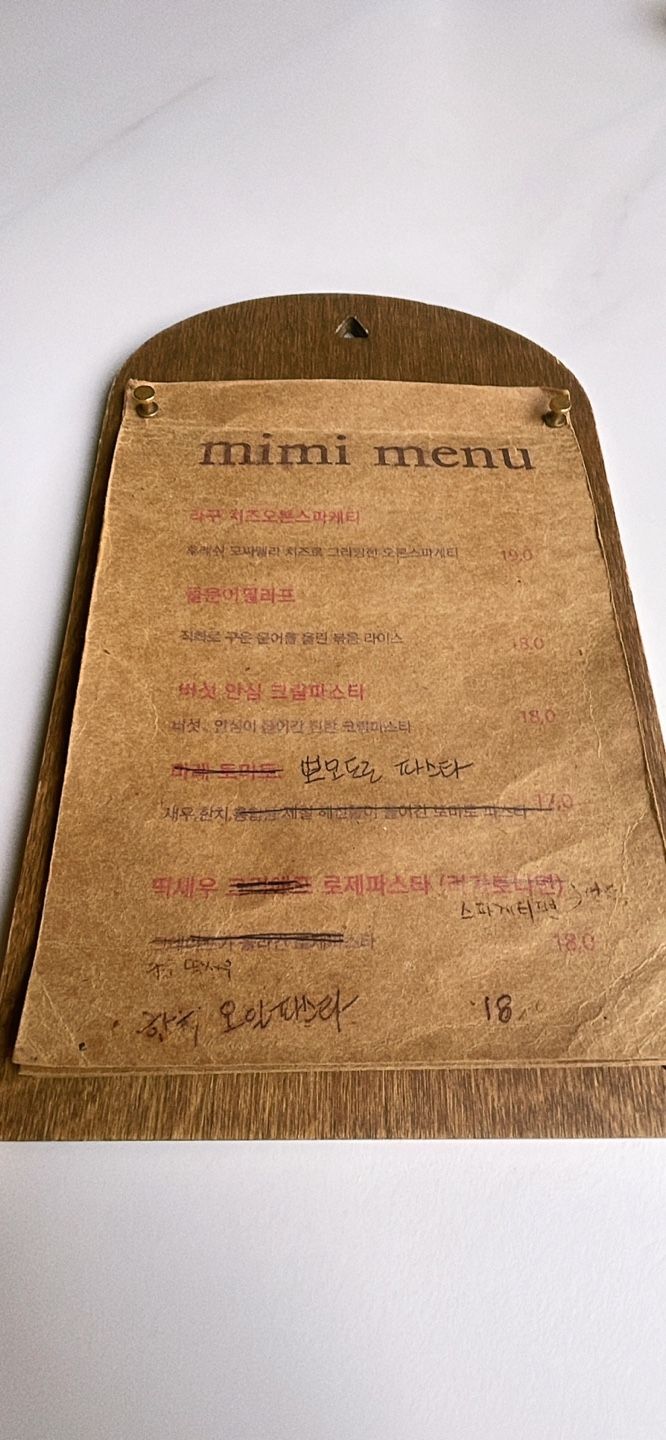 mimi menu
라구 치즈오븐스파게티
후레쉬 모짜렐라 치즈로 그라탕한 오븐스파게티 19,0
돌문어필라프
직화로 구운 문어를 올린 볶음 라이스 18,0
버섯 안심 크림파스타
버섯, 안심이 들어간 진한 크림파스타 18,0
뽀모도로 파스타
새우,한치,홍합등 제철 해산물이 들어간 토마토 파스타 17,0
딱새우 로제파스타 (리가토니면)
스파게티면
18,0
오일파스타 18